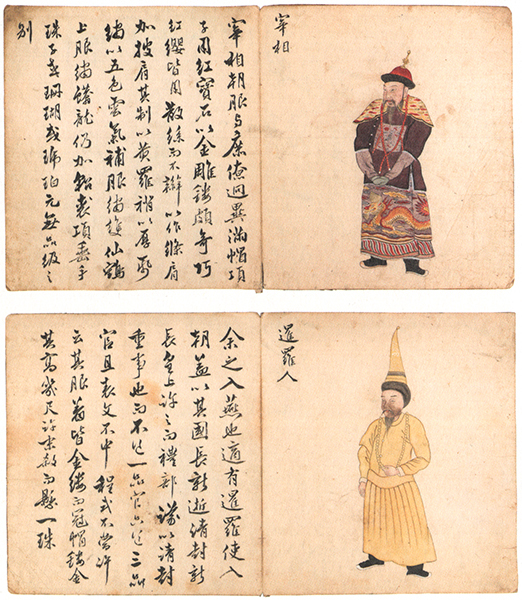 宰相
宰相朝服与庶僚迥異滿帽項
子用紅寶石以金雕鏤頗奇巧
紅纓皆用散絲而不辮以作絛肩
加披肩其制以黄羅稍以
繡以五色雲氣補服繡仙鶴
上服繡蟠龍仍加貂裘項垂
珠子或珊瑚或琥珀元無品級之
別
暹羅人
余之入燕也適有暹羅使入
朝蓋以其國長新逝請封新
長皇上許之而禮部議以請封
重事也而不送一品官只送三品
官且表文不中程式不當許
云其服着皆金縷而冠帽鏤金
其高幾尺許末而懸一珠